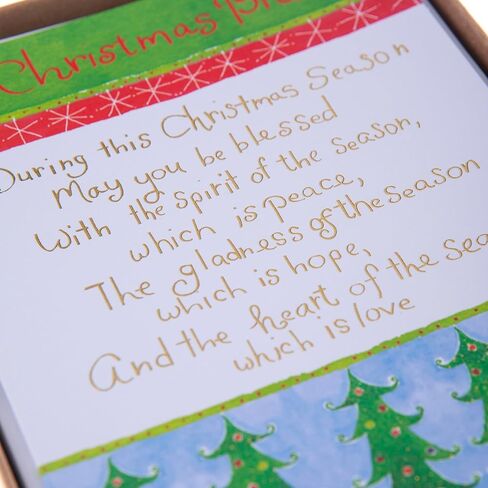 Christmas
During this Christmas Season
May you be blessed
With the spirit of the season,
which is peace,
The gladness of the season
which is hope,
And the heart of the
which is love